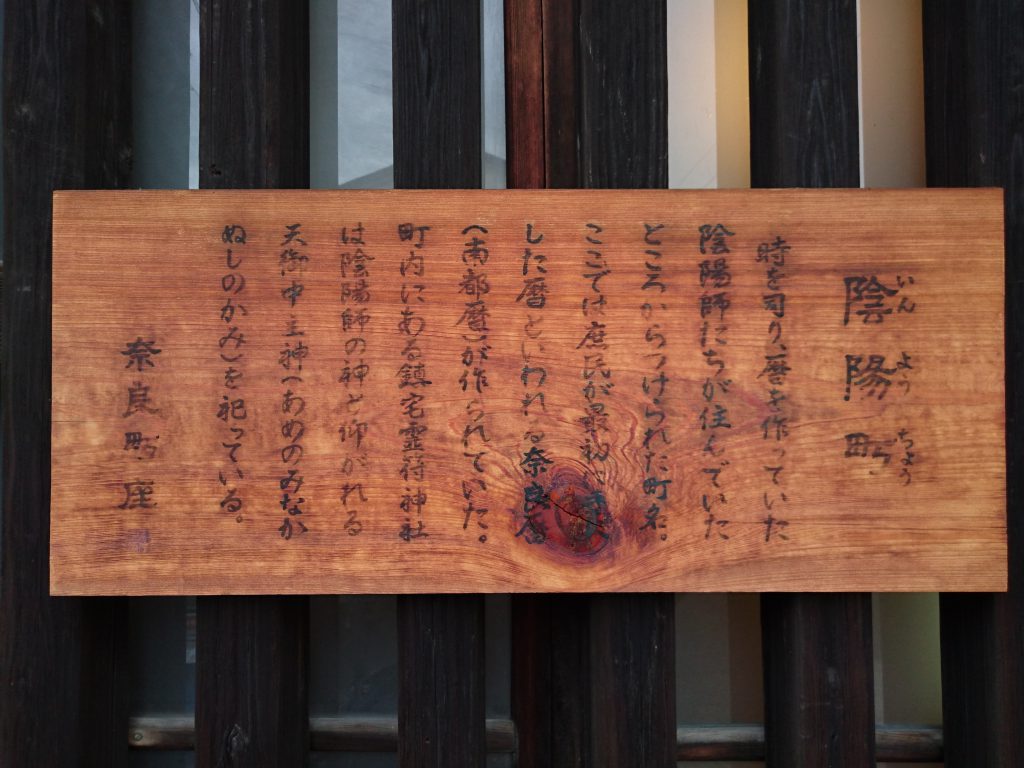 いん よう ちょう
陰陽町
時を司り、暦を作っていた
陰陽師たちが住んでいた
ところからつけられた町名。
ここでは庶民が最初に
した暦といわれる奈良暦
(南都暦)が作られていた。
町内にある鎮宅霊符神社
は陰陽師の神と仰がれる
天御中主神(あめのみなか
ぬしのかみ)を祀っている。
奈良町座